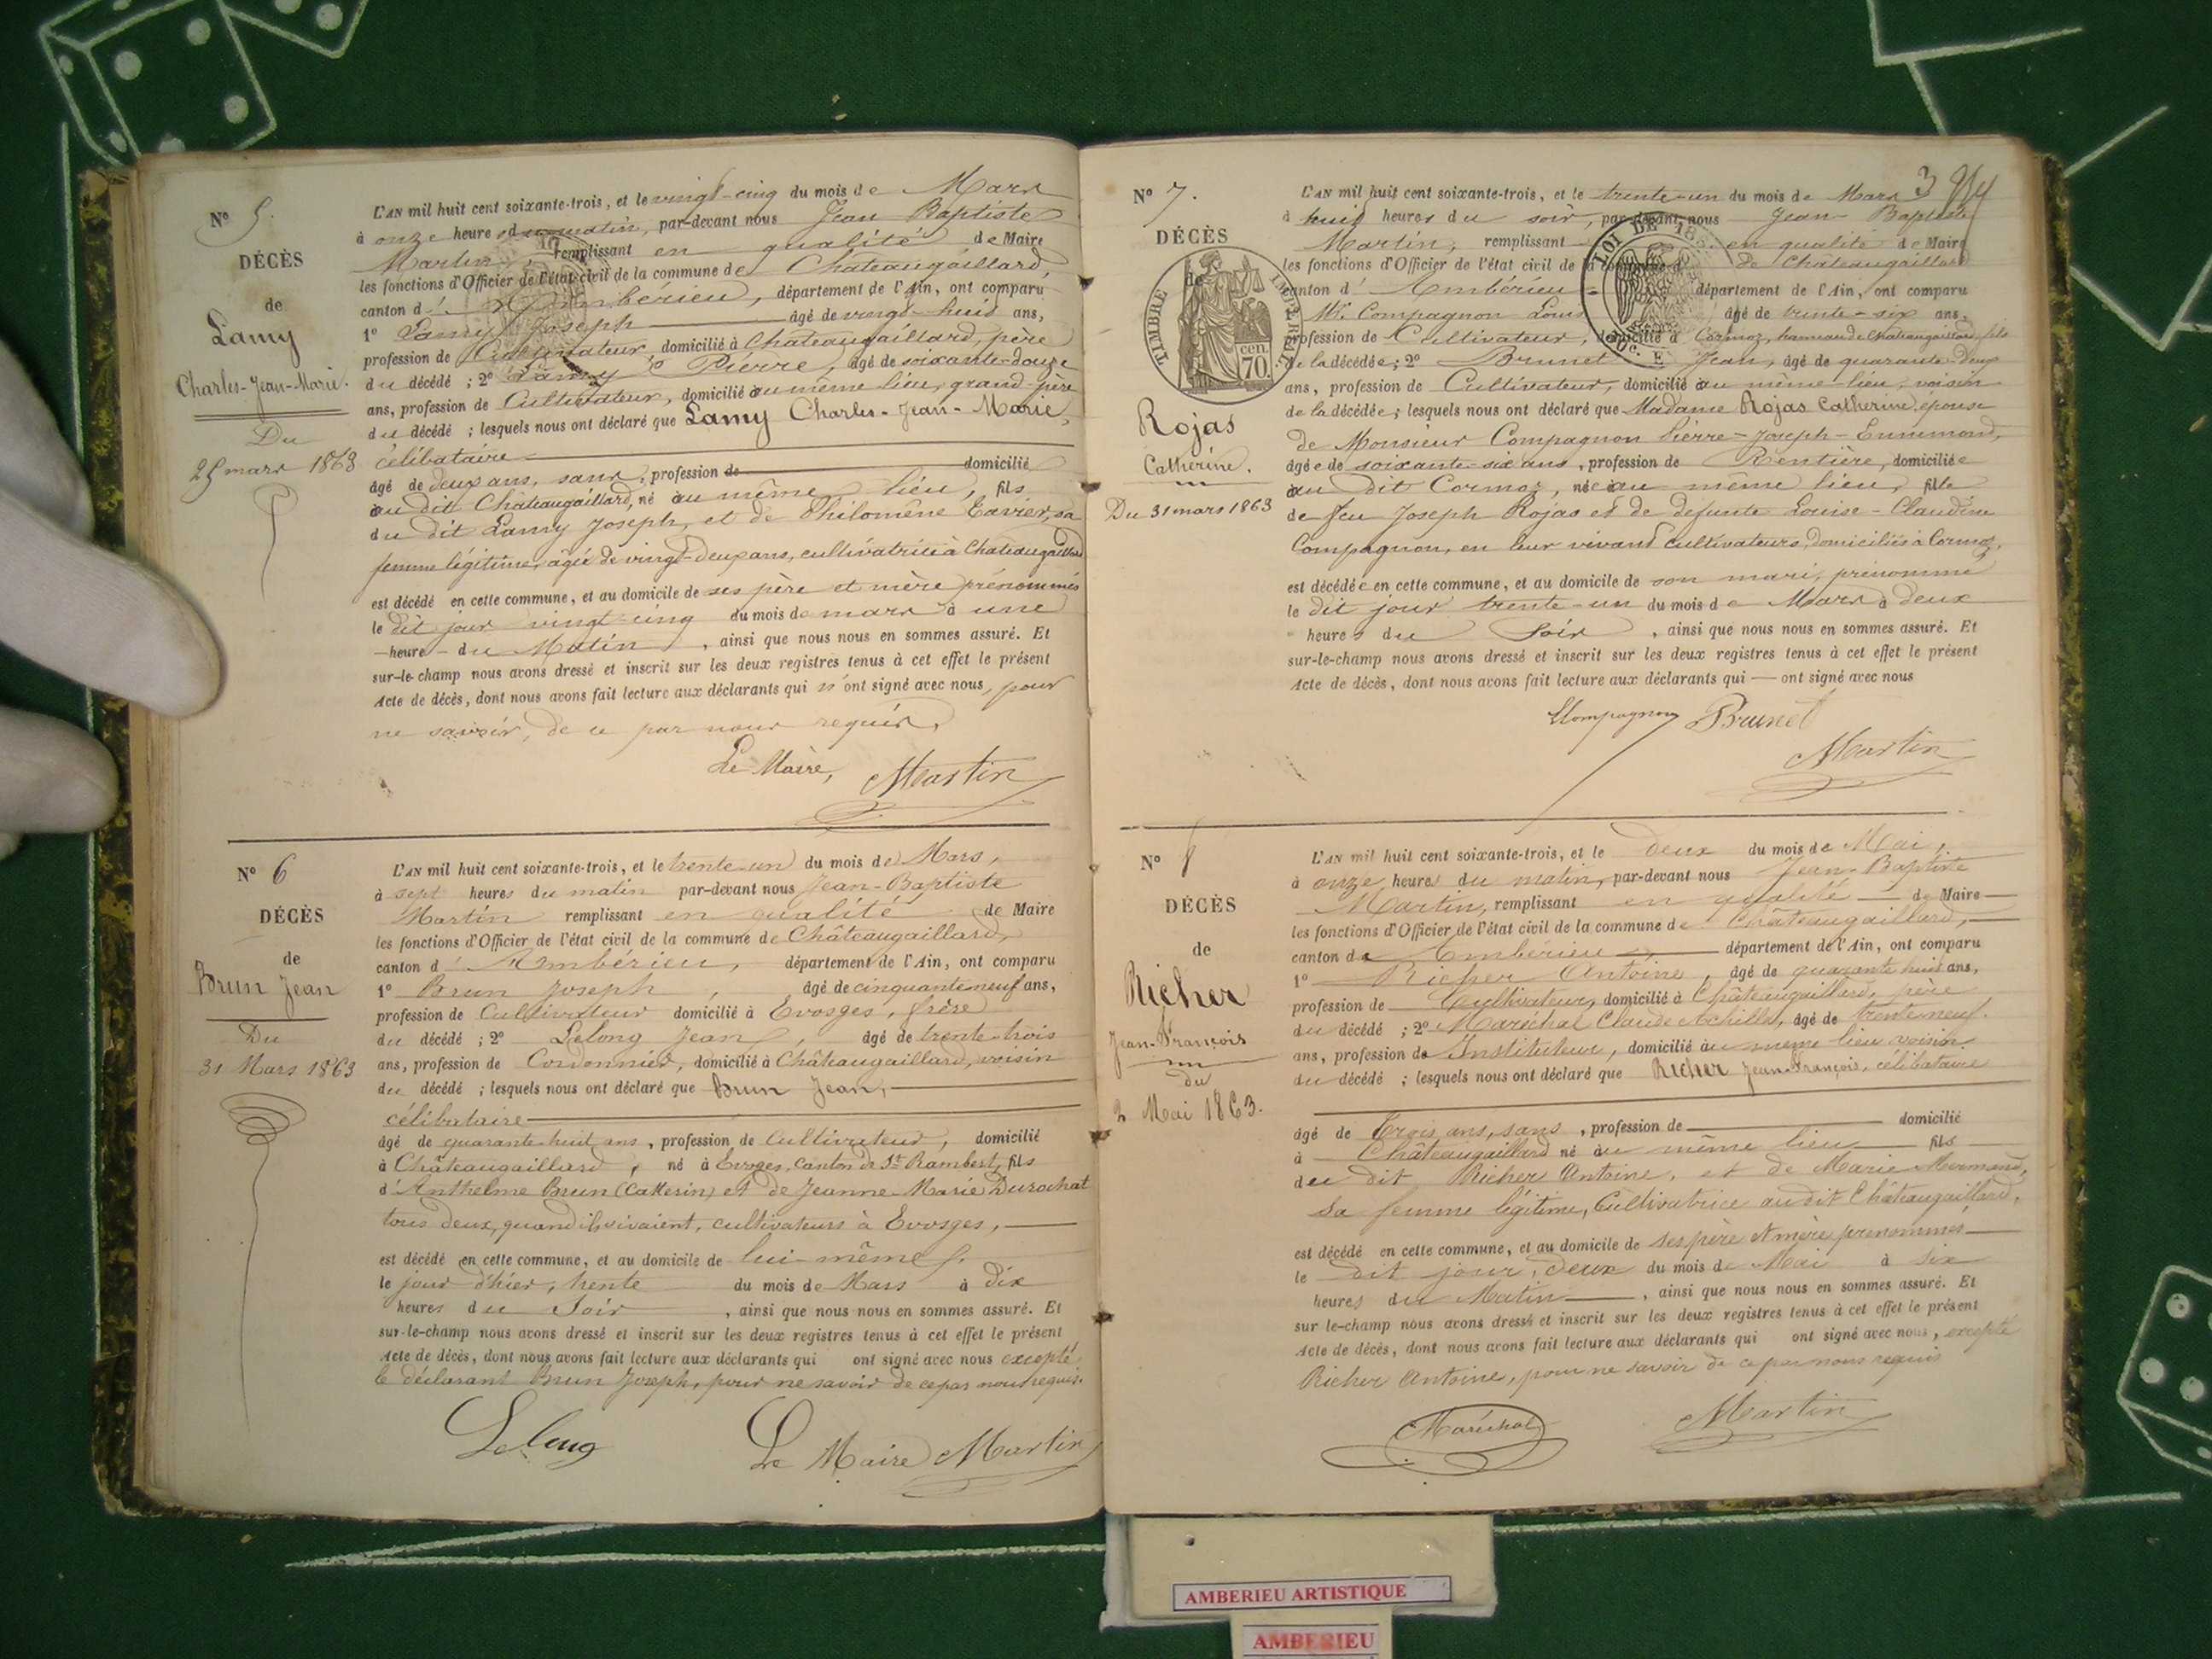 N° 5.
DÉCÈS
de
Lamy
Charles-Jean-Marie.
Du
25 mars 1863
L'AN mil huit cent soixante-trois, et le vingt-cinq du mois de Mars
à onze heures du matin, par-devant nous Jean Baptiste
Martin, remplissant en qualité de Maire
les fonctions d'Officier de l'état civil de la commune de Châteaugaillard,
canton d'Ambérieu, département de l'Ain, ont comparu
1° Lamy Joseph âgé de vingt-huit ans,
profession de Cultivateur, domicilié à Châteaugaillard, père
du décédé ; 2° Lamy Pierre, âgé de soixante-douze
ans, profession de Cultivateur, domicilié au même lieu, grand-père
du décédé ; lesquels nous ont déclaré que Lamy Charles-Jean-Marie,
célibataire
âgé de deux ans, sans, profession de domicilié
au dit Châteaugaillard, né au même lieu, fils
du dit Lamy Joseph, et de Philomène sa
femme légitime, âgée de vingt-deux ans, cultivatrice à Châteaugaillard
est décédé en cette commune, et au domicile de ses père et mère prénommés
le dit jour vingt cinq du mois de mars à une
heure du Matin, ainsi que nous nous en sommes assuré. Et
sur-le-champ nous avons dressé et inscrit sur les deux registres tenus à cet effet le présent
Acte de décès, dont nous avons fait lecture aux déclarants qui n'ont signé avec nous, pour
ne savoir, de ce par nous requis.
Le Maire, Martin
N° 6
DÉCÈS
de
Brun Jean
Du
31 Mars 1863
L'AN mil huit cent soixante-trois, et le trente-un du mois de Mars,
à sept heures du matin par-devant nous Jean-Baptiste
Martin remplissant en qualité de Maire
les fonctions d'Officier de l'état civil de la commune de Châteaugaillard,
canton d'Ambérieu, département de l'Ain, ont comparu
1° Brun Joseph, âgé de cinquante neuf ans,
profession de Cultivateur domicilié à Evosges, frère
du décédé ; 2° Lelong Jean, âgé de trente-trois
ans, profession de Cordonnier, domicilié à Châteaugaillard, voisin
du décédé ; lesquels nous ont déclaré que Brun Jean,
célibataire
âgé de quarante-huit ans, profession de Cultivateur, domicilié
à Châteaugaillard, né à Evoges, canton de St Rambert, fils
d'Anthelme Brun (Catterin) et de Jeanne-Marie Durochat
tous deux, quand ils vivaient, cultivateurs à Evosges,
est décédé en cette commune, et au domicile de lui-même,
le jour d'hier, trente du mois de Mars à dix
heures du Soir, ainsi que nous nous en sommes assuré. Et
sur-le-champ nous avons dressé et inscrit sur les deux registres tenus à cet effet le présent
Acte de décès, dont nous avons fait lecture aux déclarants qui ont signé avec nous excepté
le déclarant Brun Joseph, pour ne savoir de ce par nous requis.
Lelong Le Maire Martin
3
N° 7.
DÉCÈS
de
TIMBRE IMPÉRIAL
70 cen.
Rojas
Catherine.
Du 31 mars 1863
LOI DE
L'AN mil huit cent soixante-trois, et le trente-un du mois de Mars
à huit heures du soir, par-devant nous Jean-Baptiste
Martin, remplissant en qualité de Maire
les fonctions d'Officier de l'état civil de la commune de Châteaugaillard
canton d'Ambérieu département de l'Ain, ont comparu
Compagnon Louis âgé de trente-six ans,
profession de Cultivateur, domicilié à Cormoz, hameau de Châteaugaillard, fils
de la décédée ; 2° Brunet Jean, âgé de quarante-deux
ans, profession de Cultivateur, domicilié au même lieu, voisin
de la décédée ; lesquels nous ont déclaré que Madame Rojas Catherine, épouse
de Monsieur Compagnon Pierre-Joseph-Ennemond,
âgée de soixante-six ans, profession de Rentière, domiciliée
au dit Cormoz, née au même lieu, fille
de feu Joseph Rojas et de défunte Louise-Claudine
Compagnon, en leur vivant cultivateurs, domiciliés à Cormoz,
est décédée en cette commune, et au domicile de son mari, prénommé
le dit jour trente-un du mois de Mars à deux
heures du Soir, ainsi que nous nous en sommes assuré. Et
sur-le-champ nous avons dressé et inscrit sur les deux registres tenus à cet effet le présent
Acte de décès, dont nous avons fait lecture aux déclarants qui — ont signé avec nous
Compagnon Brunet
Martin
N° 8
DÉCÈS
de
Richer
Jean-François
du
2 Mai 1863.
L'AN mil huit cent soixante-trois, et le deux du mois de Mai,
à onze heures du matin, par-devant nous Jean-Baptiste
Martin, remplissant en qualité de Maire
les fonctions d'Officier de l'état civil de la commune de Châteaugaillard,
canton de Ambérieu département de l'Ain, ont comparu
1° Richer Antoine, âgé de quarante huit ans,
profession de Cultivateur, domicilié à Châteaugaillard, père
du décédé ; 2° Maréchal Claude Achille, âgé de trente neuf
ans, profession de Instituteur, domicilié au même lieu voisin
du décédé ; lesquels nous ont déclaré que Richer Jean-François, célibataire
âgé de Trois ans, sans, profession de domicilié
à Châteaugaillard né au même lieu fils
du dit Richer Antoine, et de Marie
Sa femme légitime, Cultivatrice au dit Châteaugaillard,
est décédé en cette commune, et au domicile de ses père et mère prénommés
le dit jour, deux du mois de Mai à six
heures du Matin, ainsi que nous nous en sommes assuré. Et
sur le-champ nous avons dressé et inscrit sur les deux registres tenus à cet effet le présent
Acte de décès, dont nous avons fait lecture aux déclarants qui ont signé avec nous, excepté
Richer Antoine, pour ne savoir de ce par nous requis
Maréchal Martin
AMBERIEU ARTISTIQUE
AMBERIEU